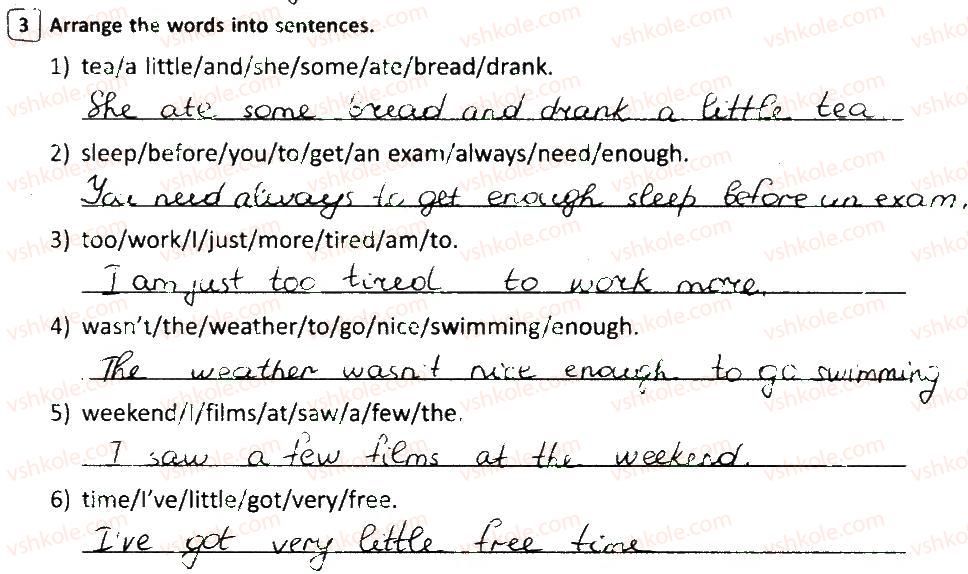 3 Arrange the words into sentences.
1) tea/a little/and/she/some/ate/bread/drank.
She ate some bread and drank a little tea
2) sleep/before/you/to/get/an exam/always/need/enough.
You need always to get enough sleep before an exam.
3) too/work/I/just/more/tired/am/to.
I am just too tired to work more.
4) wasn't/the/weather/to/go/nice/swimming/enough.
The weather wasn't nice enough to go swimming
5) weekend/I/films/at/saw/a/few/the.
I saw a few films at the weekend.
6) time/I've/little/got/very/free.
I've got very little free time